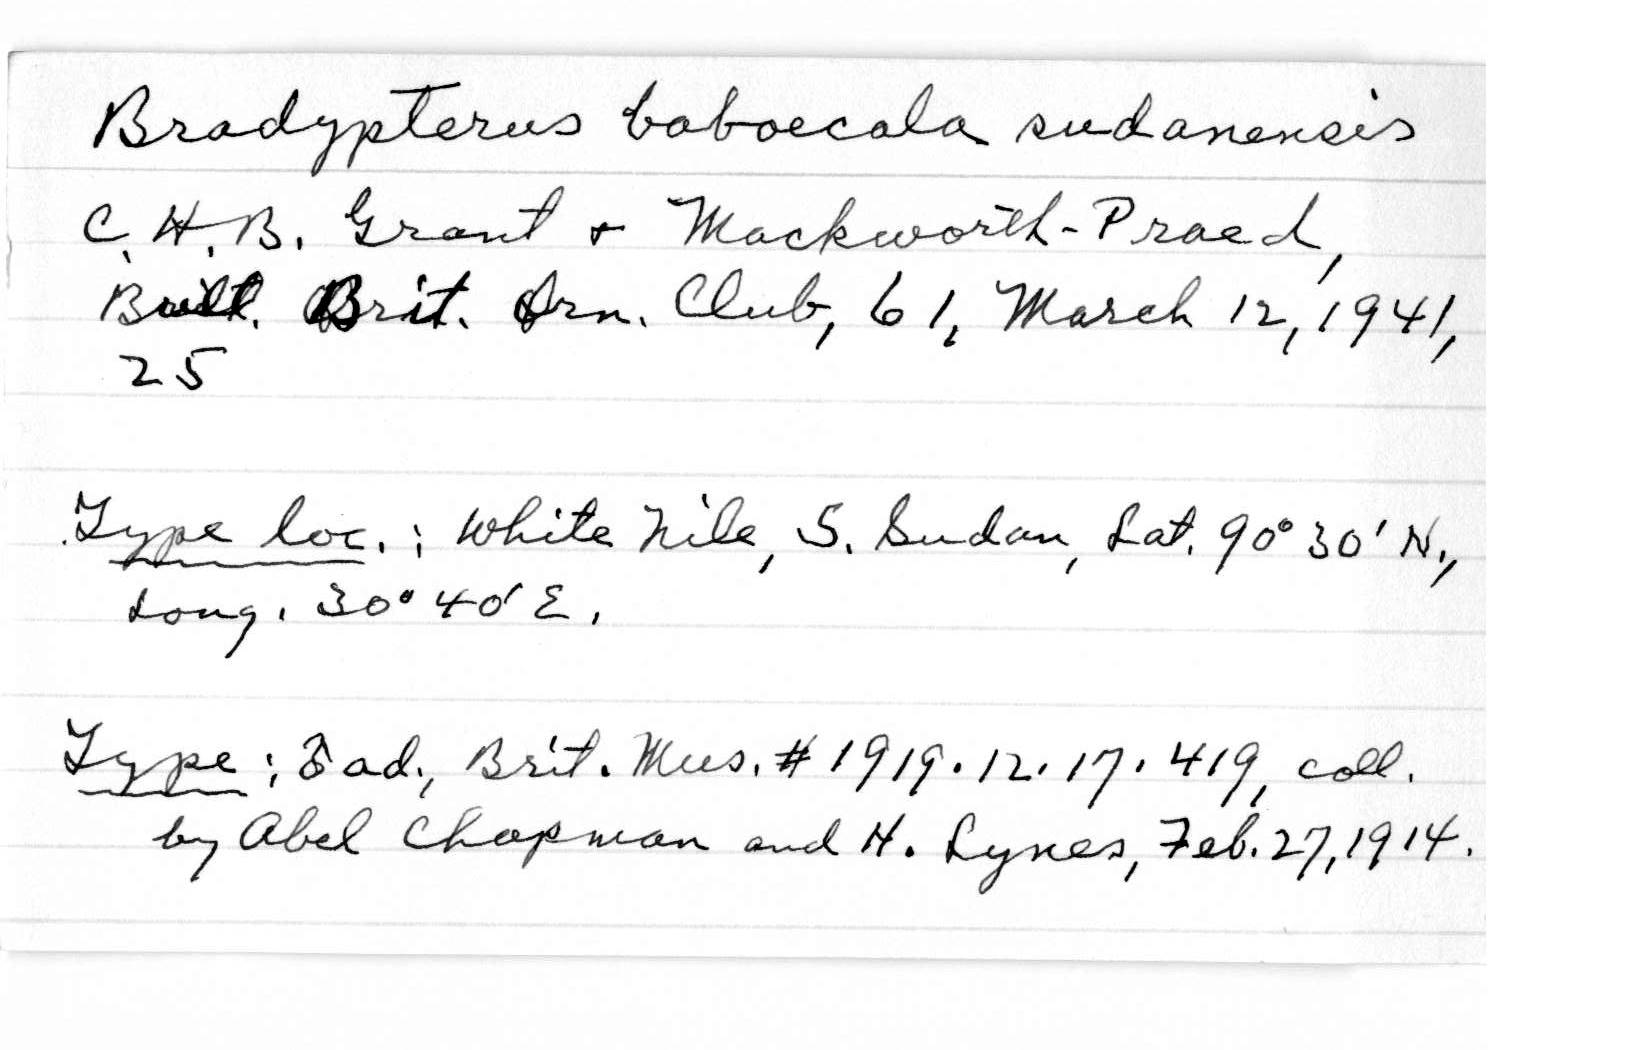 Bradypterus baboecala sudanensis
C.H.B. Grant + Mackworth-Praed,
Bull. Brit. Orn. Club, 61, March 12, 1941,
25
Type loc.: White Nile, S. Sudan, Lat. 90° 30' N.,
Long. 30° 40' E.
Type: ♂ ad., Brit. Mus. # 1919.12.17.419, coll.
by Abel Chapman and H. Lynes, Feb. 27, 1914.